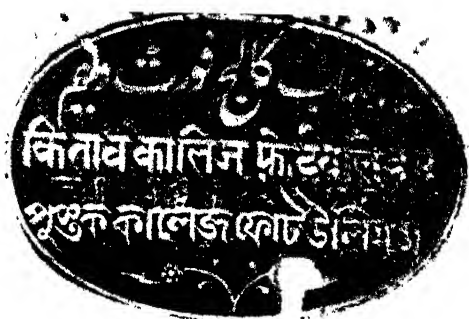 کالج فورٹ ولیم
किताब कालिज फ़ोर्ट
পুস্তক কালেজ ফোর্ট উলিয়ম